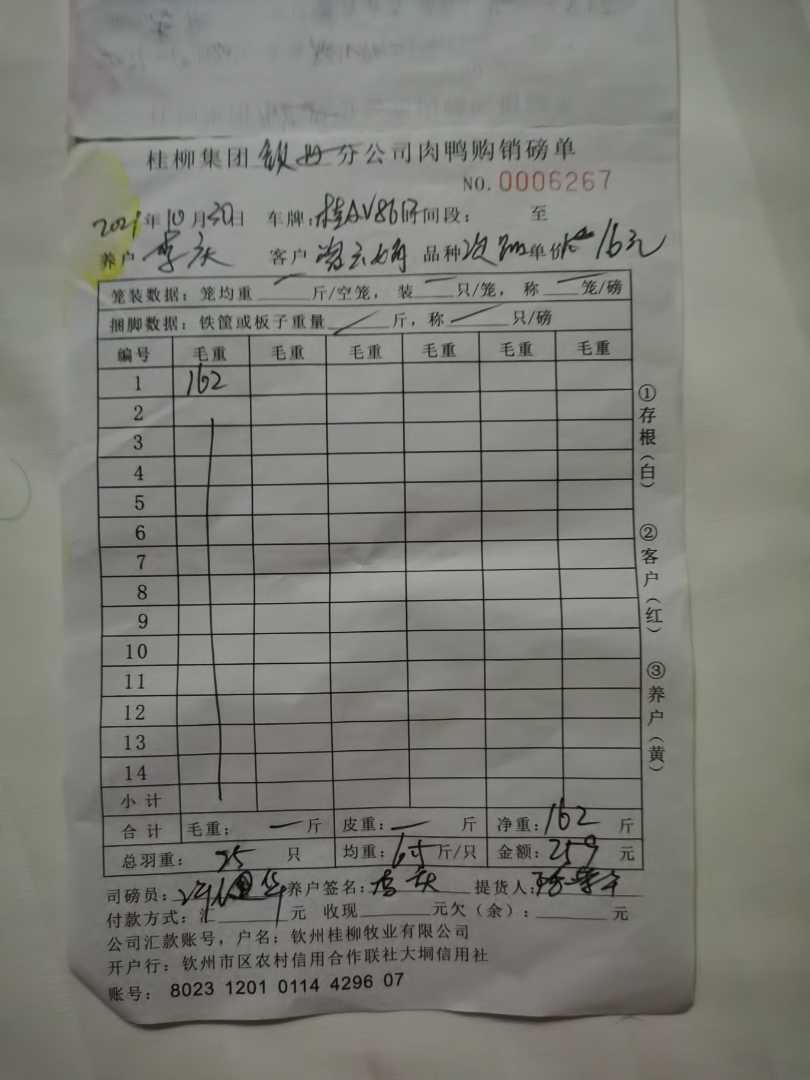 桂柳集团 钦州 分公司肉鸭购销磅单
NO. 0006267
2021年10月30日 车牌:桂AV861 时间段: 至
养户 李庆 客户 品种 单价 16元
笼装数据: 笼均重 斤/空笼, 装 只/笼, 称 笼/磅
捆脚数据: 铁筐或板子重量 斤, 称 只/磅
编号 毛重 毛重 毛重 毛重 毛重 毛重
1 162
2
3
4
5
6
7
8
9
10
11
12
13
14
小计
合计 毛重: 斤 皮重: 斤 净重: 162 斤
总羽重: 25 只 均重: 6.5 斤/只 金额: 259 元
司磅员: 养户签名: 李庆 提货人:
付款方式: 汇 元 收现 元欠(余): 元
公司汇款账号, 户名: 钦州桂柳牧业有限公司
开户行: 钦州市区农村信用合作联社大垌信用社
账号: 8023 1201 0114 4296 07
①存根(白) ②客户(红) ③养户(黄)